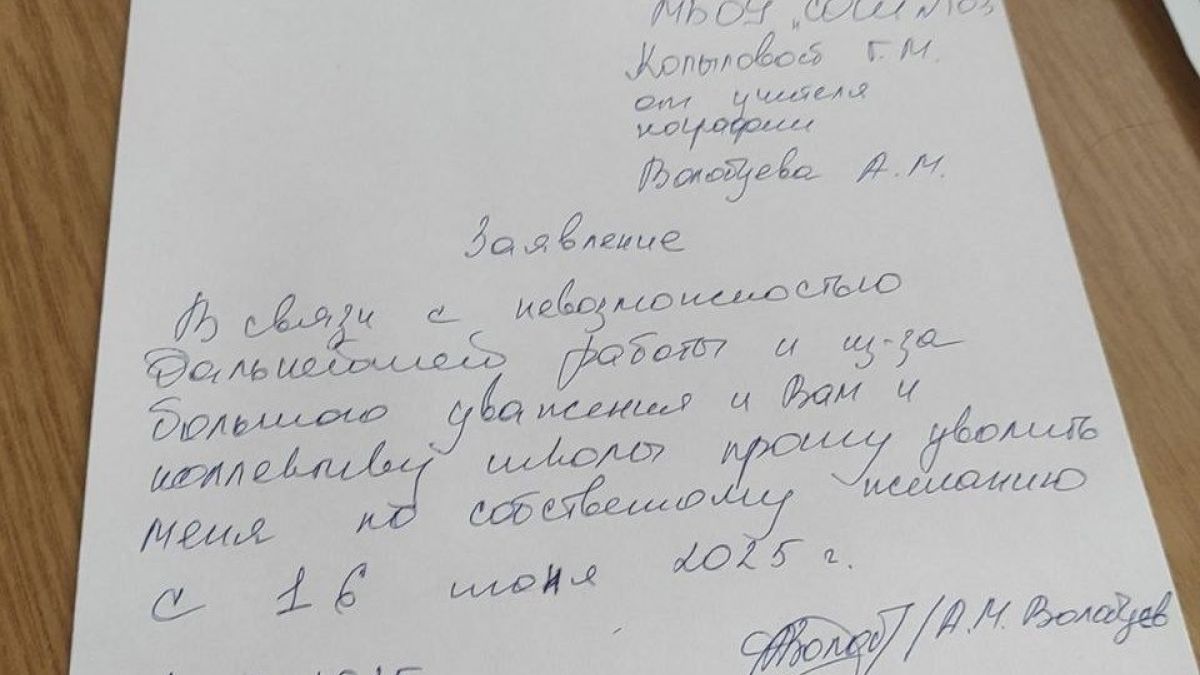 МБОУ "СОШ №103
Копыловой Г.М.
от учителя
географии
Волобуева А.М.
Заявление
В связи с невозможностью
дальнейшей работы и из-за
большого уважения к Вам и
коллективу школы прошу уволить
меня по собственному желанию
с 16 июня 2025 г.
/А.М. Волобуев